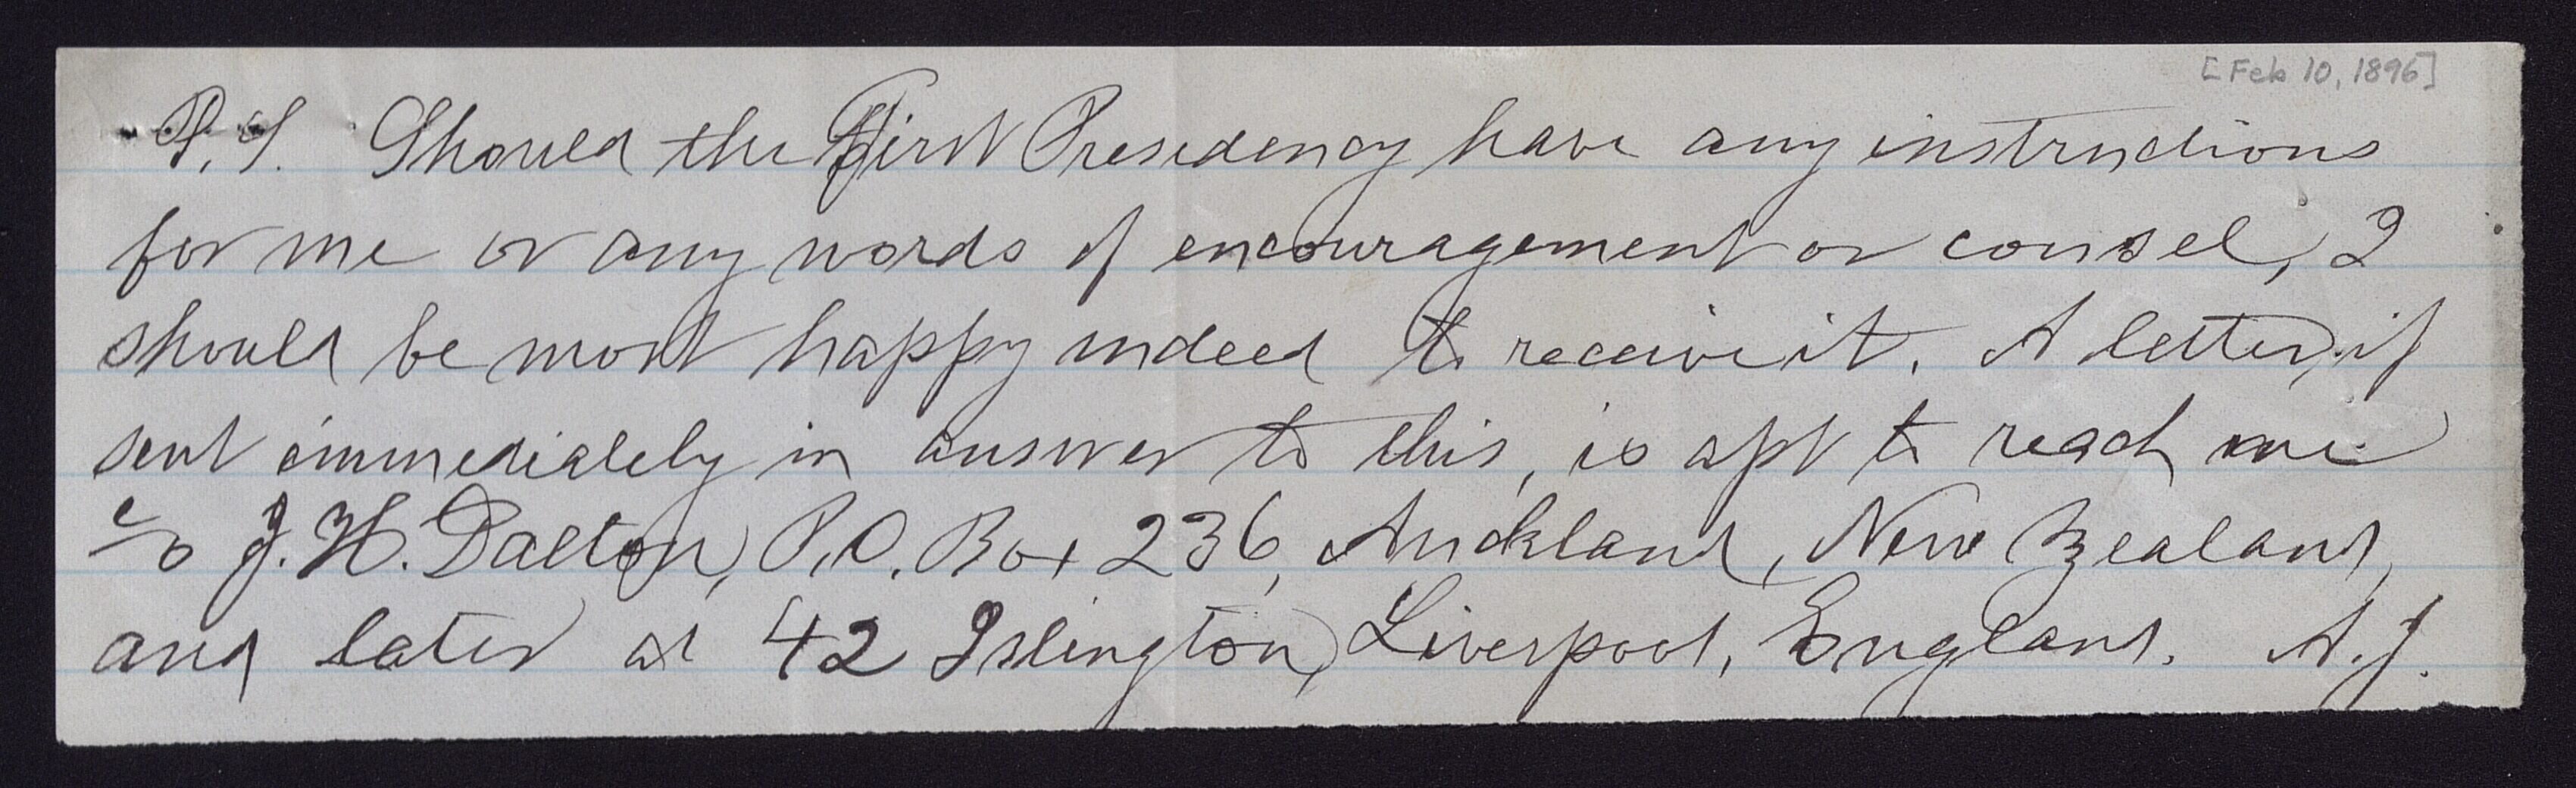 [Feb 10, 1896]
P.S. Should the First Presidency have any instructions
for me or any words of encouragement or counsel, I
should be most happy indeed to receive it. A letter, if
sent immediately in answer to this, is apt to reach me
c/o J. H. Dalton, P.O. Box 236, Auckland, New Zealand,
and later at 42 Islington, Liverpool, England. A.J.